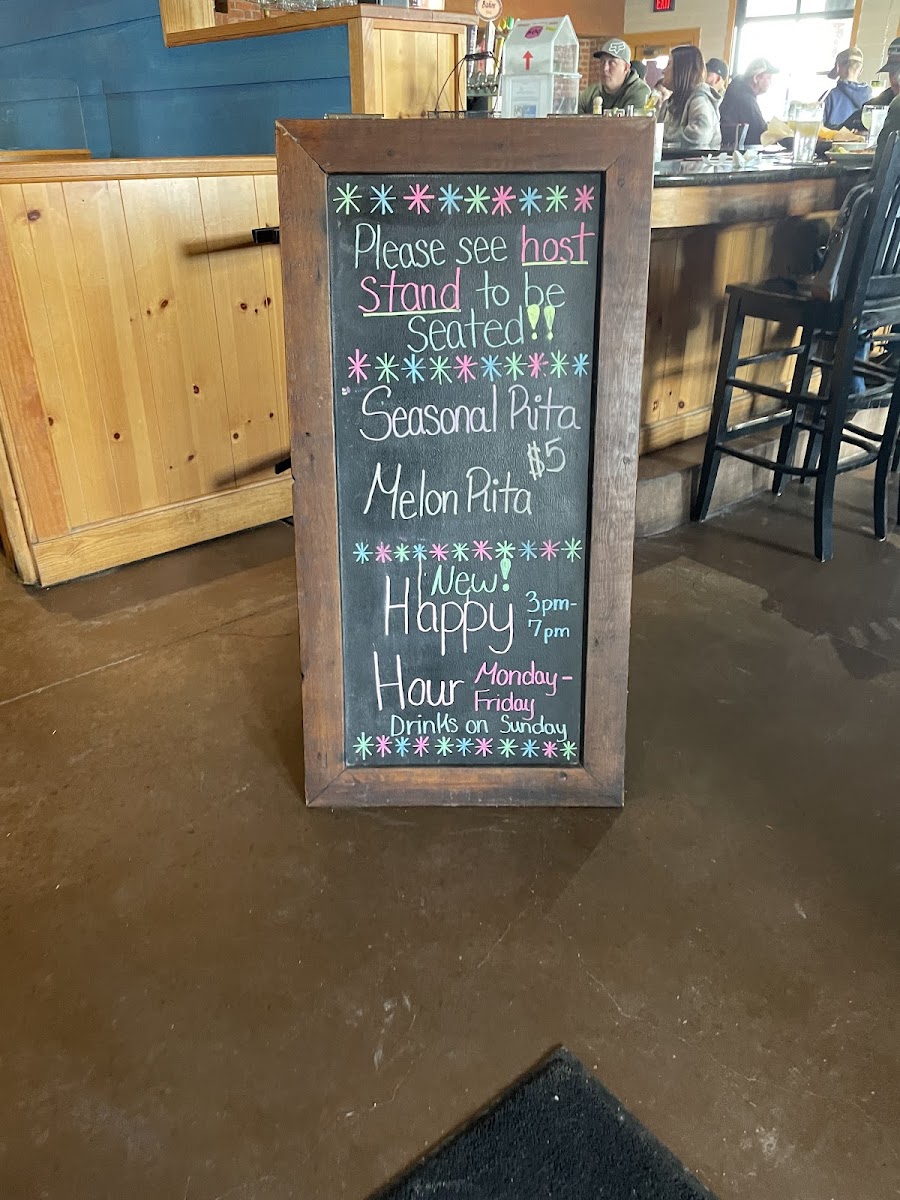 EXIT
Please see host
stand to be
seated!!
Seasonal Rita
$5
Melon Rita
New!
Happy 3pm-
7pm
Hour Monday-
Friday
Drinks on Sunday